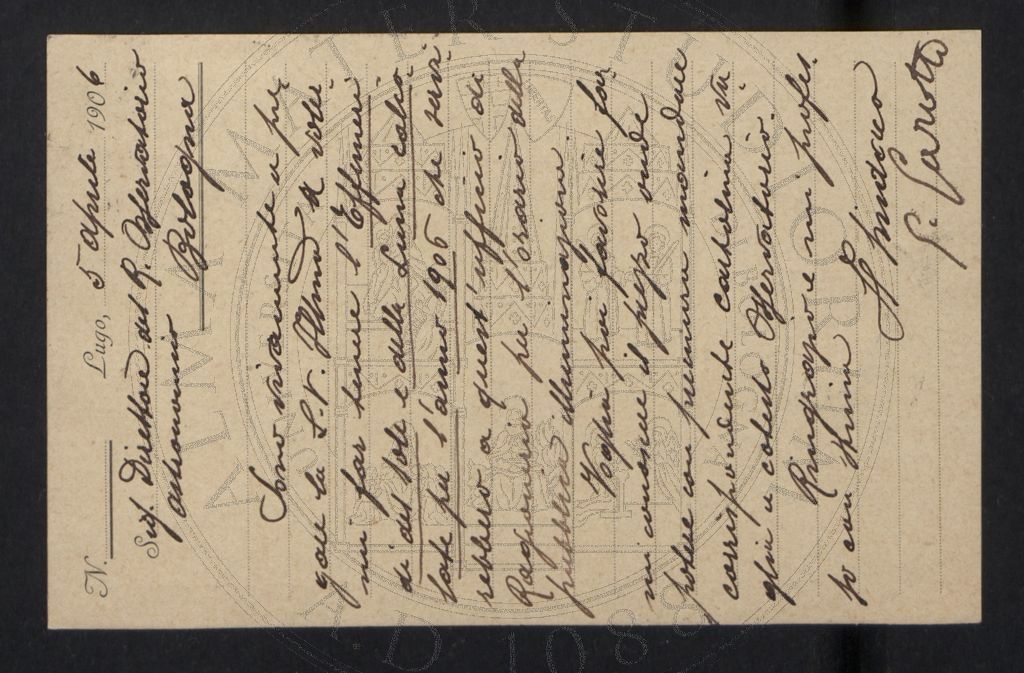 N.
Lugo, 5 aprile 1906
Sig. Direttore del R. Osservatorio
astronomico
Bologna
Sono vivamente a pre
gare la S.V. Ill.ma a voler
mi far tenere l'Effemeri
di del sole e della Luna calco
late per l'anno 1906 che servi
rebbero a quest'ufficio di
Ragioneria per l'orario della
pubblica illuminazione.
Voglia poi favorire far
mi conoscere il prezzo onde
potere con premura mandare
corrispondente cartolina va
glia a cotesto Osservatorio.
Ringrazio e mi profes
so con stima
Il Sindaco
ALMA MATER STUDIORUM
A.D. 1088